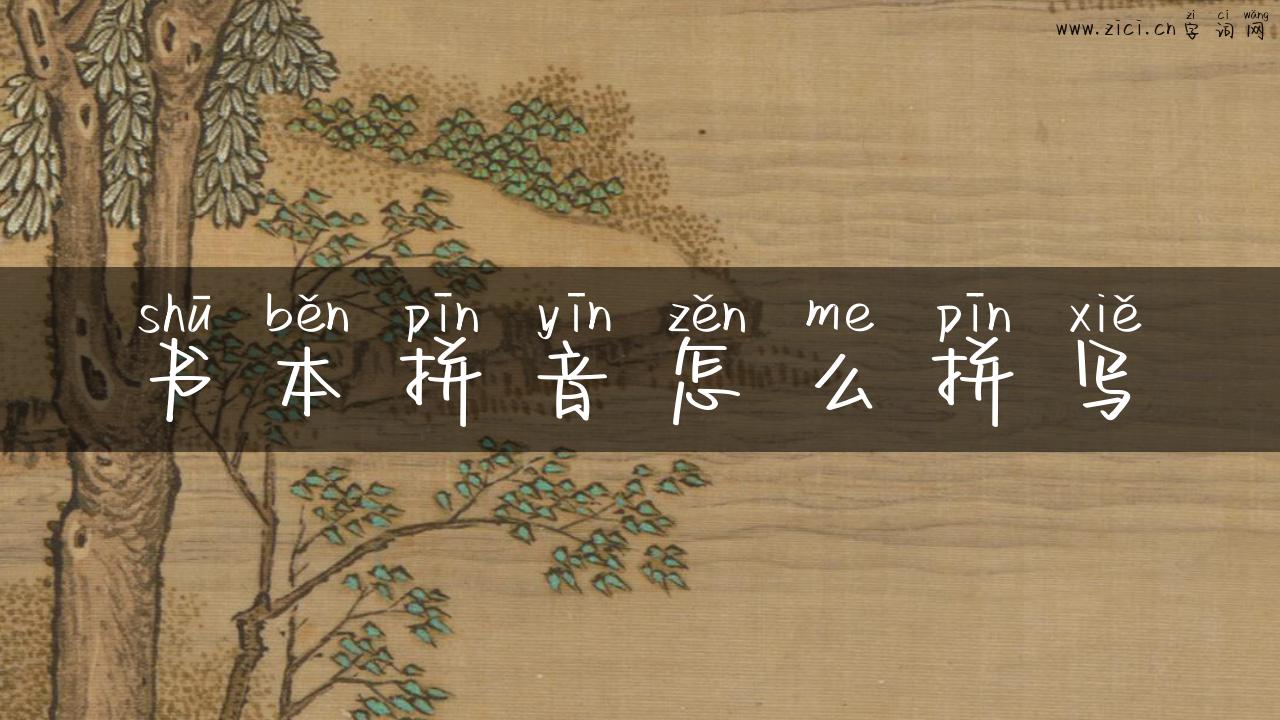 zì cí wǎng
www.zici.cn 字词网
shū běn pīn yīn zěn me pīn xiě
书本拼音怎么拼写